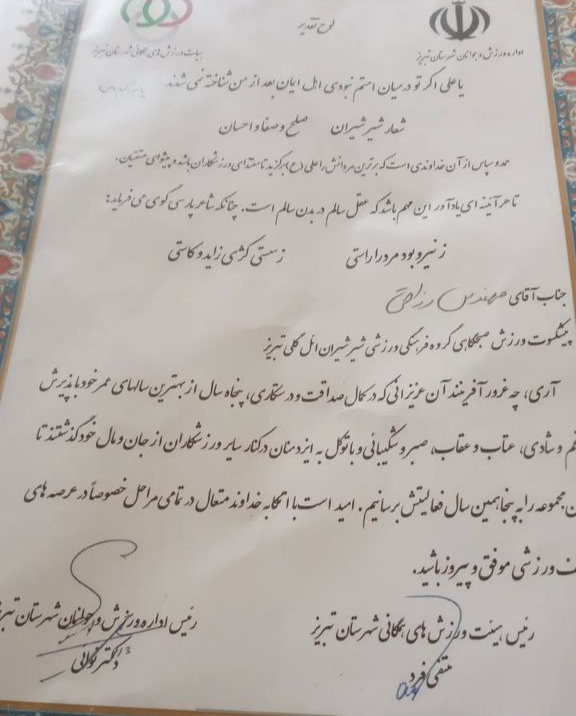 لوح تقدیر
اداره ورزش و جوانان شهرستان تبریز
هیات ورزش های همگانی شهرستان تبریز
یاعلی اگر تو در میان امتم نبودی اهل ایمان بعد از من شناخته نمی شدند
شعار شیرشیران صلح و صفا و احسان
حمد و سپاس از آن خداوندی است که برترین مردانش را علی (ع) برگزید تا مقتدای ورزشکاران باشد و پیشوای متقیان.
تا هر آئینه ای یادآور این مهم باشد که عقل سالم در بدن سالم است. چنانکه شاعر پارسی گوی می فرماید:
ز نیرو بود مرد را راستی ز سستی کژی زاید و کاستی
جناب آقای مهندس
پیشکوت ورزش صبحگاهی گروه فرهنگی ورزشی شیرشیران ائل گلی تبریز
آری، چه غرور آفرینند آن عزیزانی که در کمال صداقت و درستکاری، پنجاه سال از بهترین سالهای عمر خود با پذیرش
غم و شادی، عتاب و عقاب، صبر و شکیبائی و با توکل به ایزد منان در کنار سایر ورزشکاران از جان و مال خود گذشتند تا
مجموعه را به پنجاهمین سال فعالیتش برسانیم. امید است با اتکا به خداوند متعال در تمامی مراحل خصوصاً در عرصه های
ورزشی موفق و پیروز باشید.
رئیس هیئت ورزش های همگانی شهرستان تبریز
متقی فرد
رئیس اداره ورزش و جوانان شهرستان
دکتر